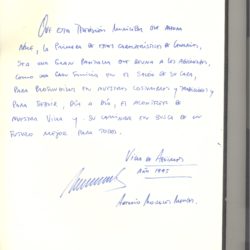 QUE ESTA TELEVISIÓN MUNICIPAL QUE AHORA
NACE, LA PRIMERA DE ESTAS CARACTERÍSTICAS EN
SEA UNA GRAN PANTALLA QUE REUNA A LOS
COMO UNA GRAN FAMILIA EN EL SALÓN DE SU CASA,
PARA PROFUNDIZAR EN NUESTRAS COSTUMBRES Y TRADICIONES Y
PARA SEGUIR, DÍA A DÍA, EL
NUESTRA VILLA Y SU CAMINAR EN BUSCA DE UN
FUTURO MEJOR PARA TODOS.
VILLA DE
AÑO 1995
ANTONIO MORALES